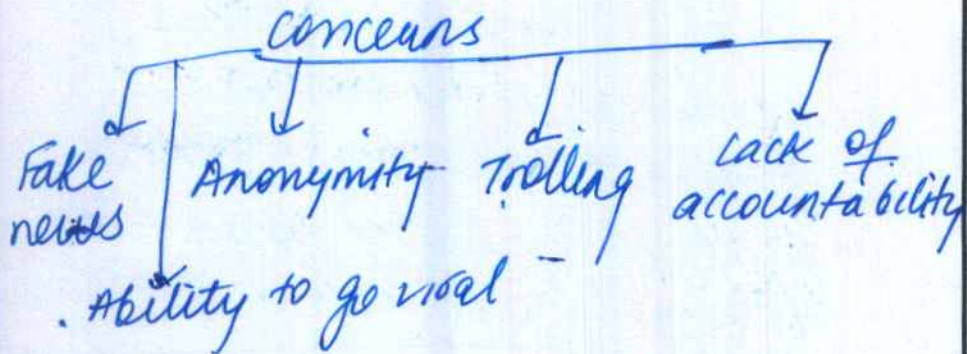 Concerns
Fake news
Anonymity
Trolling
Lack of accountability
Ability to go viral